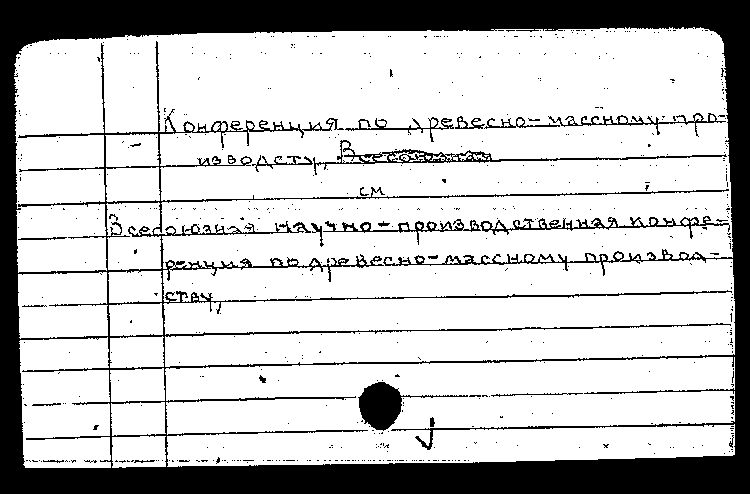 Конференция по древесно-массному про-
изводсту, Всесоюзная
см
Всесоюзная научно-производственная конфе-
ренция по древесно-массному производ-
ству,